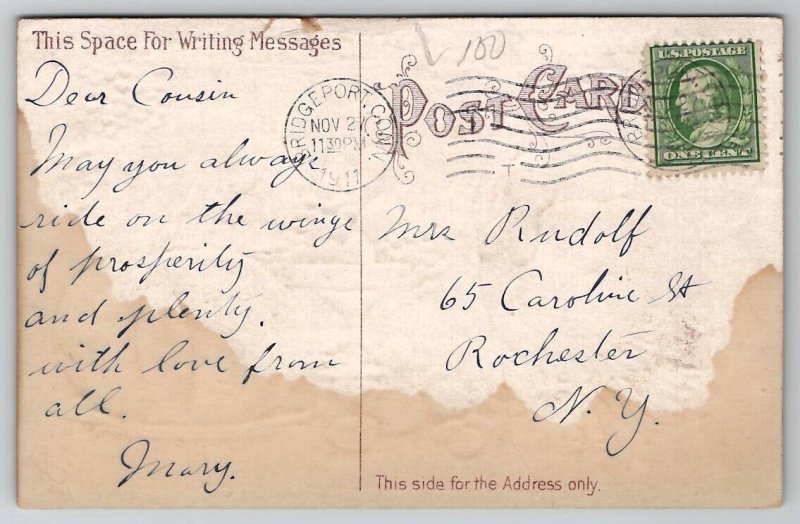 This Space For Writing Messages
Dear Cousin
May you always
ride on the wings
of prosperity
and plenty.
with love from
all.
Mary.
100
POST CARD
BRIDGEPORT, CONN
NOV 27
1130PM
1911
T
U.S. POSTAGE
ONE CENT
Mrs Rudolf
65 Caroline St
Rochester
N.Y.
This side for the Address only.